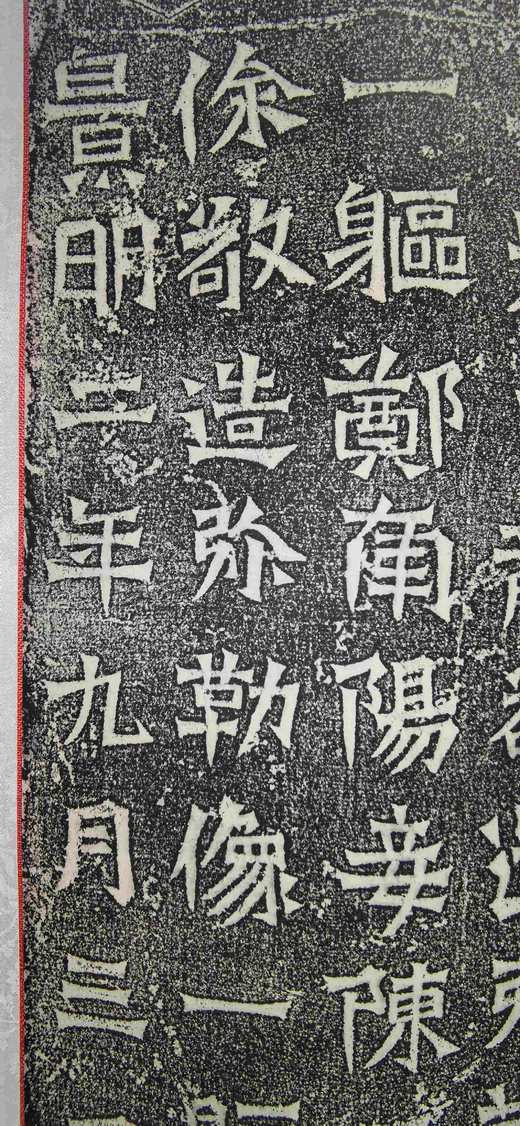 一軀鄭南陽妾陳
徐敬造弥勒像一
景明二年九月三